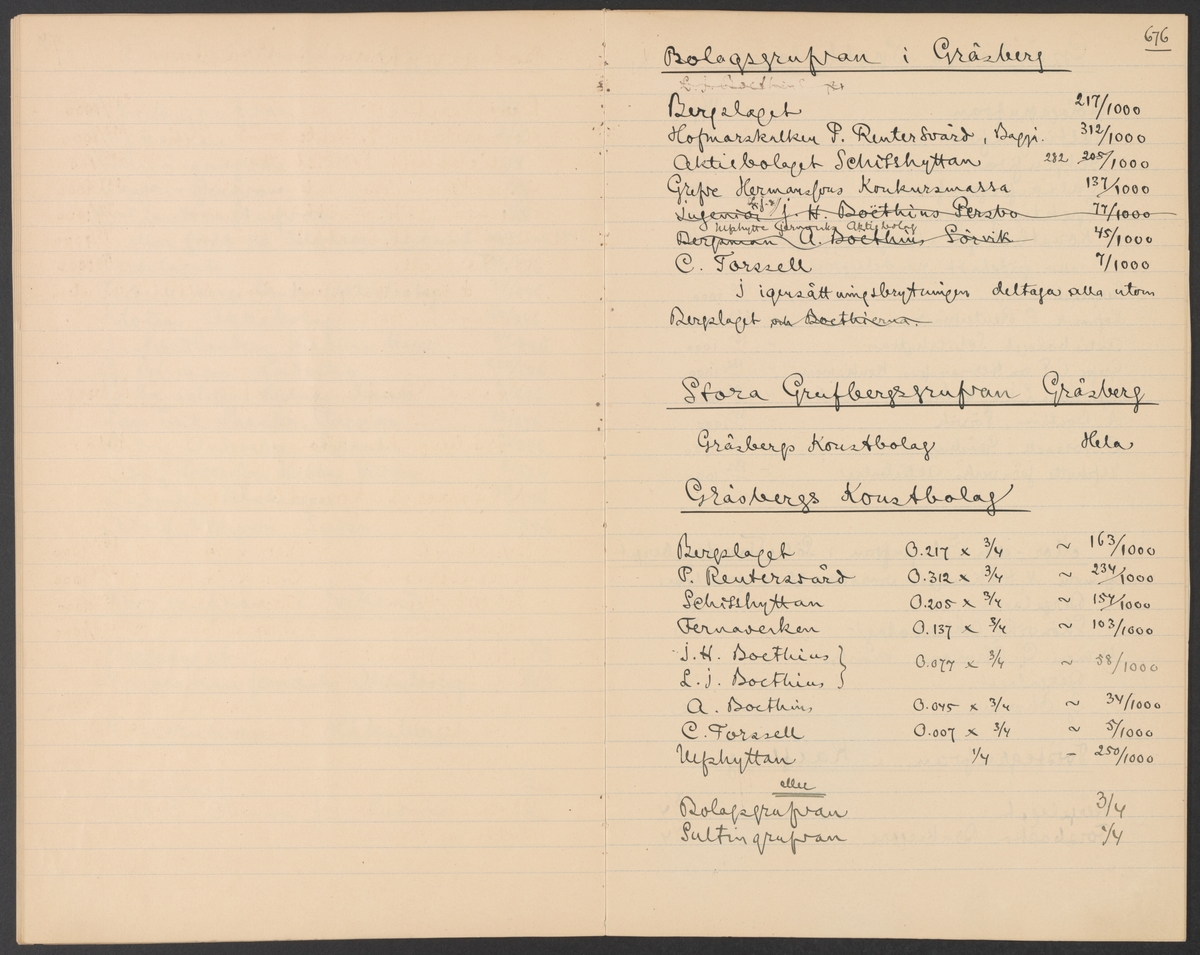 676
Bolagsgrufvan i Gräsberg
Bergslaget 217/1000
Hofmarskalken P. Rentersvärd, 312/1000
Aktiebolaget Schisshyttan 282 205/1000
Grefve Hermanssons Konkursmassa 137/1000
Ingeniör J. H. Boëthius Persbo 77/1000
Ulfshytte Aktiebolag
Bergsman A. Boethius Sörvik 45/1000
C. Forssell 7/1000
I igensättningsbrytningen deltaga alla utom
Bergslaget och Boethierna.
Stora Grufbergsgrufvan Gräsberg
Gräsbergs Konstbolag Hela
Gräsbergs Konstbolag
Bergslaget 0.217 x 3/4 ~ 163/1000
P. Rentersvärd 0.312 x 3/4 ~ 234/1000
Schisshyttan 0.205 x 3/4 ~ 154/1000
Fernaverken 0.137 x 3/4 ~ 103/1000
J. H. Boethius }
L. J. Boethius } 0.077 x 3/4 ~ 58/1000
A. Boethius 0.045 x 3/4 ~ 34/1000
C. Forssell 0.007 x 3/4 ~ 5/1000
Ulfshyttan 1/4 – 250/1000
eller
Bolagsgrufvan 3/4
Sultingrufvan 1/4